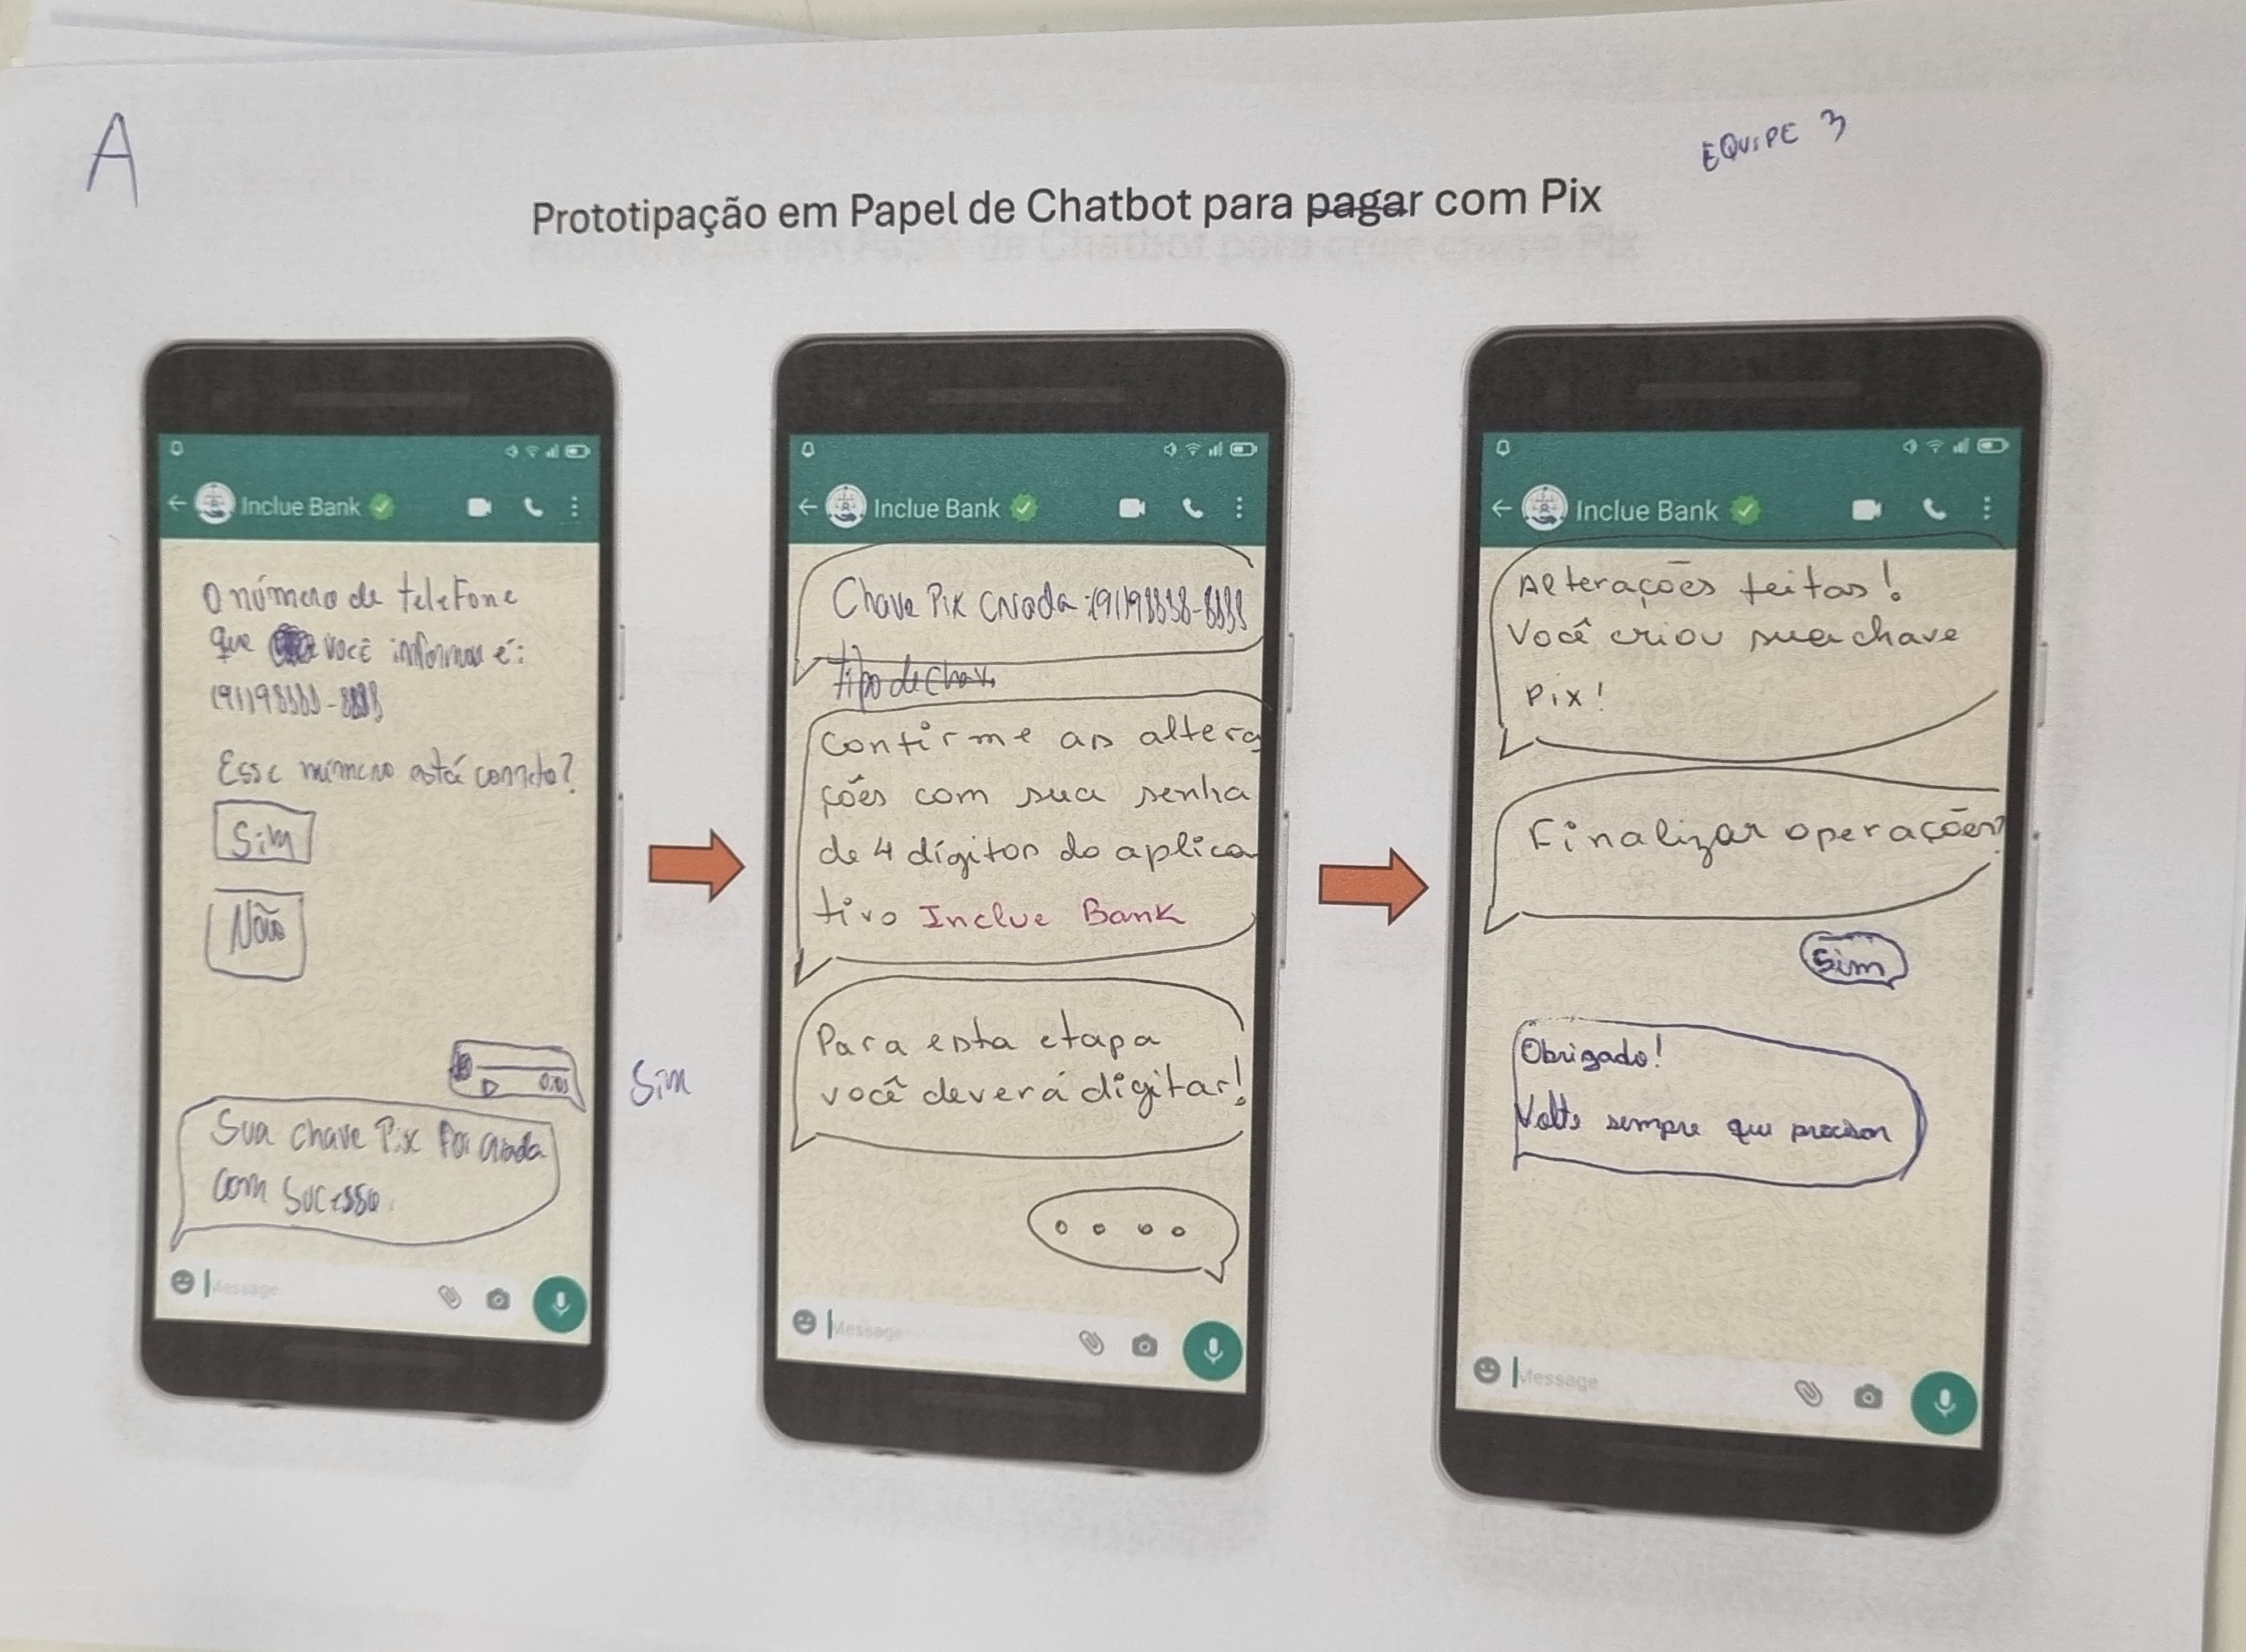 A
EQUIPE 3
Prototipação em Papel de Chatbot para pagar com Pix
Inclue Bank
O número de telefone
que você informou é:
(91)98888-8888
Esse número está correto?
Sim
Não
0:03
Sim
Sua chave Pix foi criada
com sucesso.
Message
Inclue Bank
Chave Pix criada: (91)98888-8888
tipo de chav
Confirme as altera
ções com sua senha
de 4 dígitos do aplica
tivo Inclue Bank
Para esta etapa
você deverá digitar!
Message
Inclue Bank
Alterações feitas!
Você criou sua chave
Pix!
Finalizar operações?
Sim
Obrigado!
Volte sempre que precisar
Message